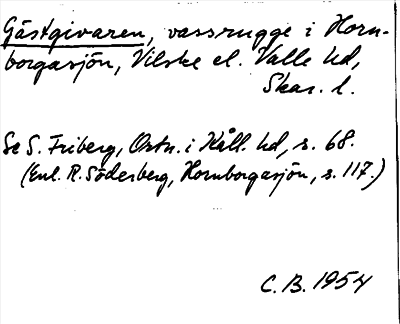 Gästgivaren, vassrugge i Horn-
borgasjön, Vilske el. Valle hd,
Skar. l.
Se S. Friberg, Ortn. i Kåll. hd, s. 68.
(Enl. R. Söderberg, Hornborgasjön, s. 117.)
C. B. 1954